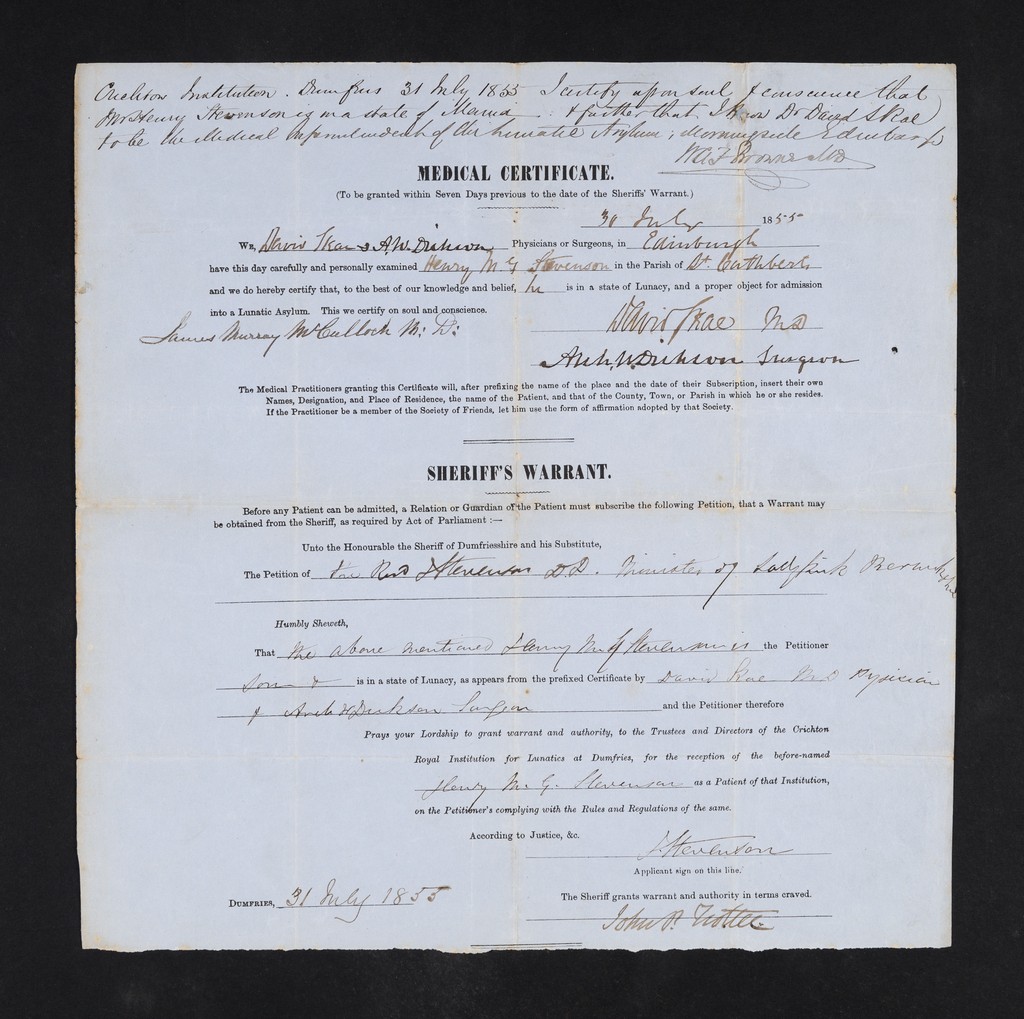 Crichton Institution. Dumfries 31 July 1855 I certify upon soul & conscience that
Mr Henry Stevenson is in a state of Mania. & further that I know Dr David Skae
to be the Medical Superintendent of the Lunatic Asylum, Morningside Edinburgh
W.A.F. Browne MD
MEDICAL CERTIFICATE.
(To be granted within Seven Days previous to the date of the Sheriffs' Warrant.)
30 July 1855
We, David Skae & A.W. Dickson Physicians or Surgeons, in Edinburgh
have this day carefully and personally examined Henry M. G Stevenson in the Parish of St. Cuthberts
and we do hereby certify that, to the best of our knowledge and belief, he is in a state of Lunacy, and a proper object for admission
into a Lunatic Asylum. This we certify on soul and conscience.
James Murray McCulloch M: D:
David Skae MD
Archd. W. Dickson Surgeon
The Medical Practitioners granting this Certificate will, after prefixing the name of the place and the date of their Subscription, insert their own
Names, Designation, and Place of Residence, the name of the Patient, and that of the County, Town, or Parish in which he or she resides.
If the Practitioner be a member of the Society of Friends, let him use the form of affirmation adopted by that Society.
SHERIFF'S WARRANT.
Before any Patient can be admitted, a Relation or Guardian of the Patient must subscribe the following Petition, that a Warrant may
be obtained from the Sheriff, as required by Act of Parliament :—
Unto the Honourable the Sheriff of Dumfriesshire and his Substitute,
The Petition of The Revd J Stevenson D.D. Minister of Ladykirk Berwickshire
Humbly Sheweth,
That the above mentioned Henry M G Stevenson is the Petitioner
son & is in a state of Lunacy, as appears from the prefixed Certificate by David Skae M D Physician
& Archd W Dickson Surgeon and the Petitioner therefore
Prays your Lordship to grant warrant and authority, to the Trustees and Directors of the Crichton
Royal Institution for Lunatics at Dumfries, for the reception of the before-named
Henry M. G. Stevenson as a Patient of that Institution,
on the Petitioner's complying with the Rules and Regulations of the same.
According to Justice, &c.
J Stevenson
Applicant sign on this line.
Dumfries, 31 July 1855
The Sheriff grants warrant and authority in terms craved.
John P. Trotter